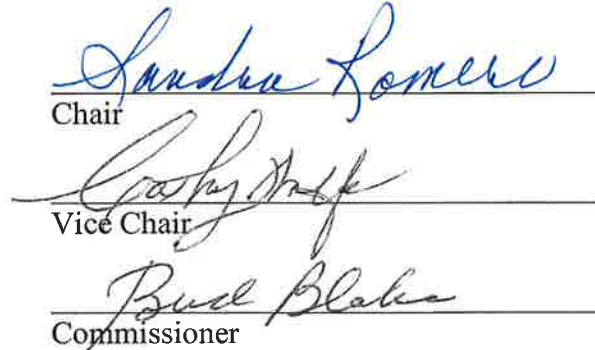 Sandra Romero
Chair
Cathy Wolfe
Vice Chair
Bud Blake
Commissioner